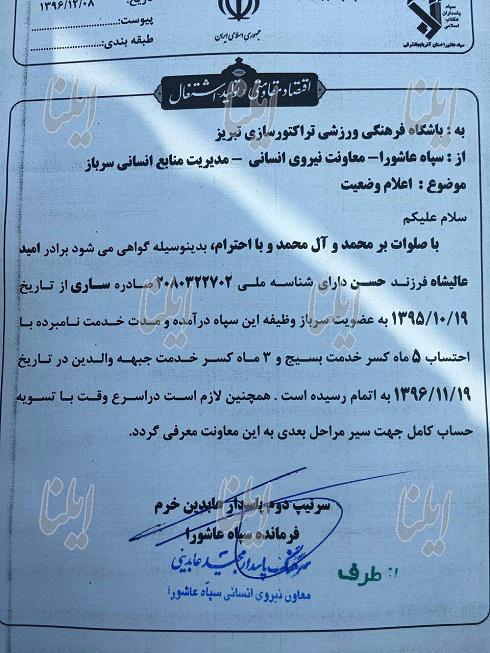 تاریخ: ۱۳۹۶/۱۲/۰۸
پیوست:
طبقه بندی:
جمهوری اسلامی ایران
سپاه پاسداران انقلاب اسلامی
سپاه عاشورا استان آذربایجانشرقی
اقتصاد مقاومتی تولید، اشتغال
به : باشگاه فرهنگی ورزشی تراکتورسازی تبریز
از : سپاه عاشورا – معاونت نیروی انسانی – مدیریت منابع انسانی سرباز
موضوع : اعلام وضعیت
سلام علیکم
با صلوات بر محمد و آل محمد و با احترام، بدینوسیله گواهی می شود برادر امید
عالیشاه فرزند حسن دارای شناسه ملی ۲۰۸۰۳۲۲۷۰۲ صادره ساری از تاریخ
۱۳۹۵/۱۰/۱۹ به عضویت سرباز وظیفه این سپاه درآمده و مدت خدمت نامبرده با
احتساب ۵ ماه کسر خدمت بسیج و ۳ ماه کسر خدمت جبهه والدین در تاریخ
۱۳۹۶/۱۱/۱۹ به اتمام رسیده است . همچنین لازم است دراسرع وقت با تسویه
حساب کامل جهت سیر مراحل بعدی به این معاونت معرفی گردد.
سرتیپ دوم پاسدار عابدین خرم
فرمانده سپاه عاشورا
از طرف
سرهنگ پاسدار مجید عابدینی
معاون نیروی انسانی سپاه عاشورا
ایلنا
ایلنا
ایلنا
ایلنا
ایلنا
ایلنا
ایلنا
ایلنا